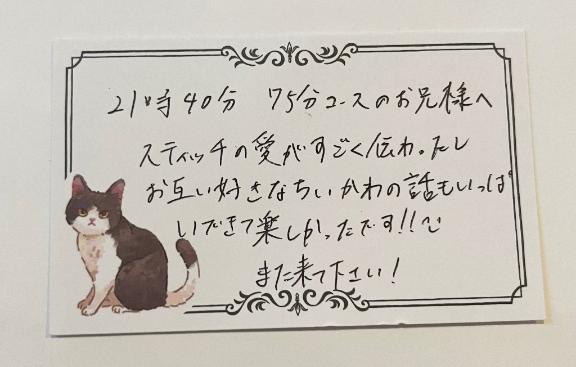 21時40分 75分コースのお兄様へ
スティッチの愛がすごく伝わったし
お互い好きなちいかわの話もいっぱ
いできて楽しかったです!!
また来て下さい!